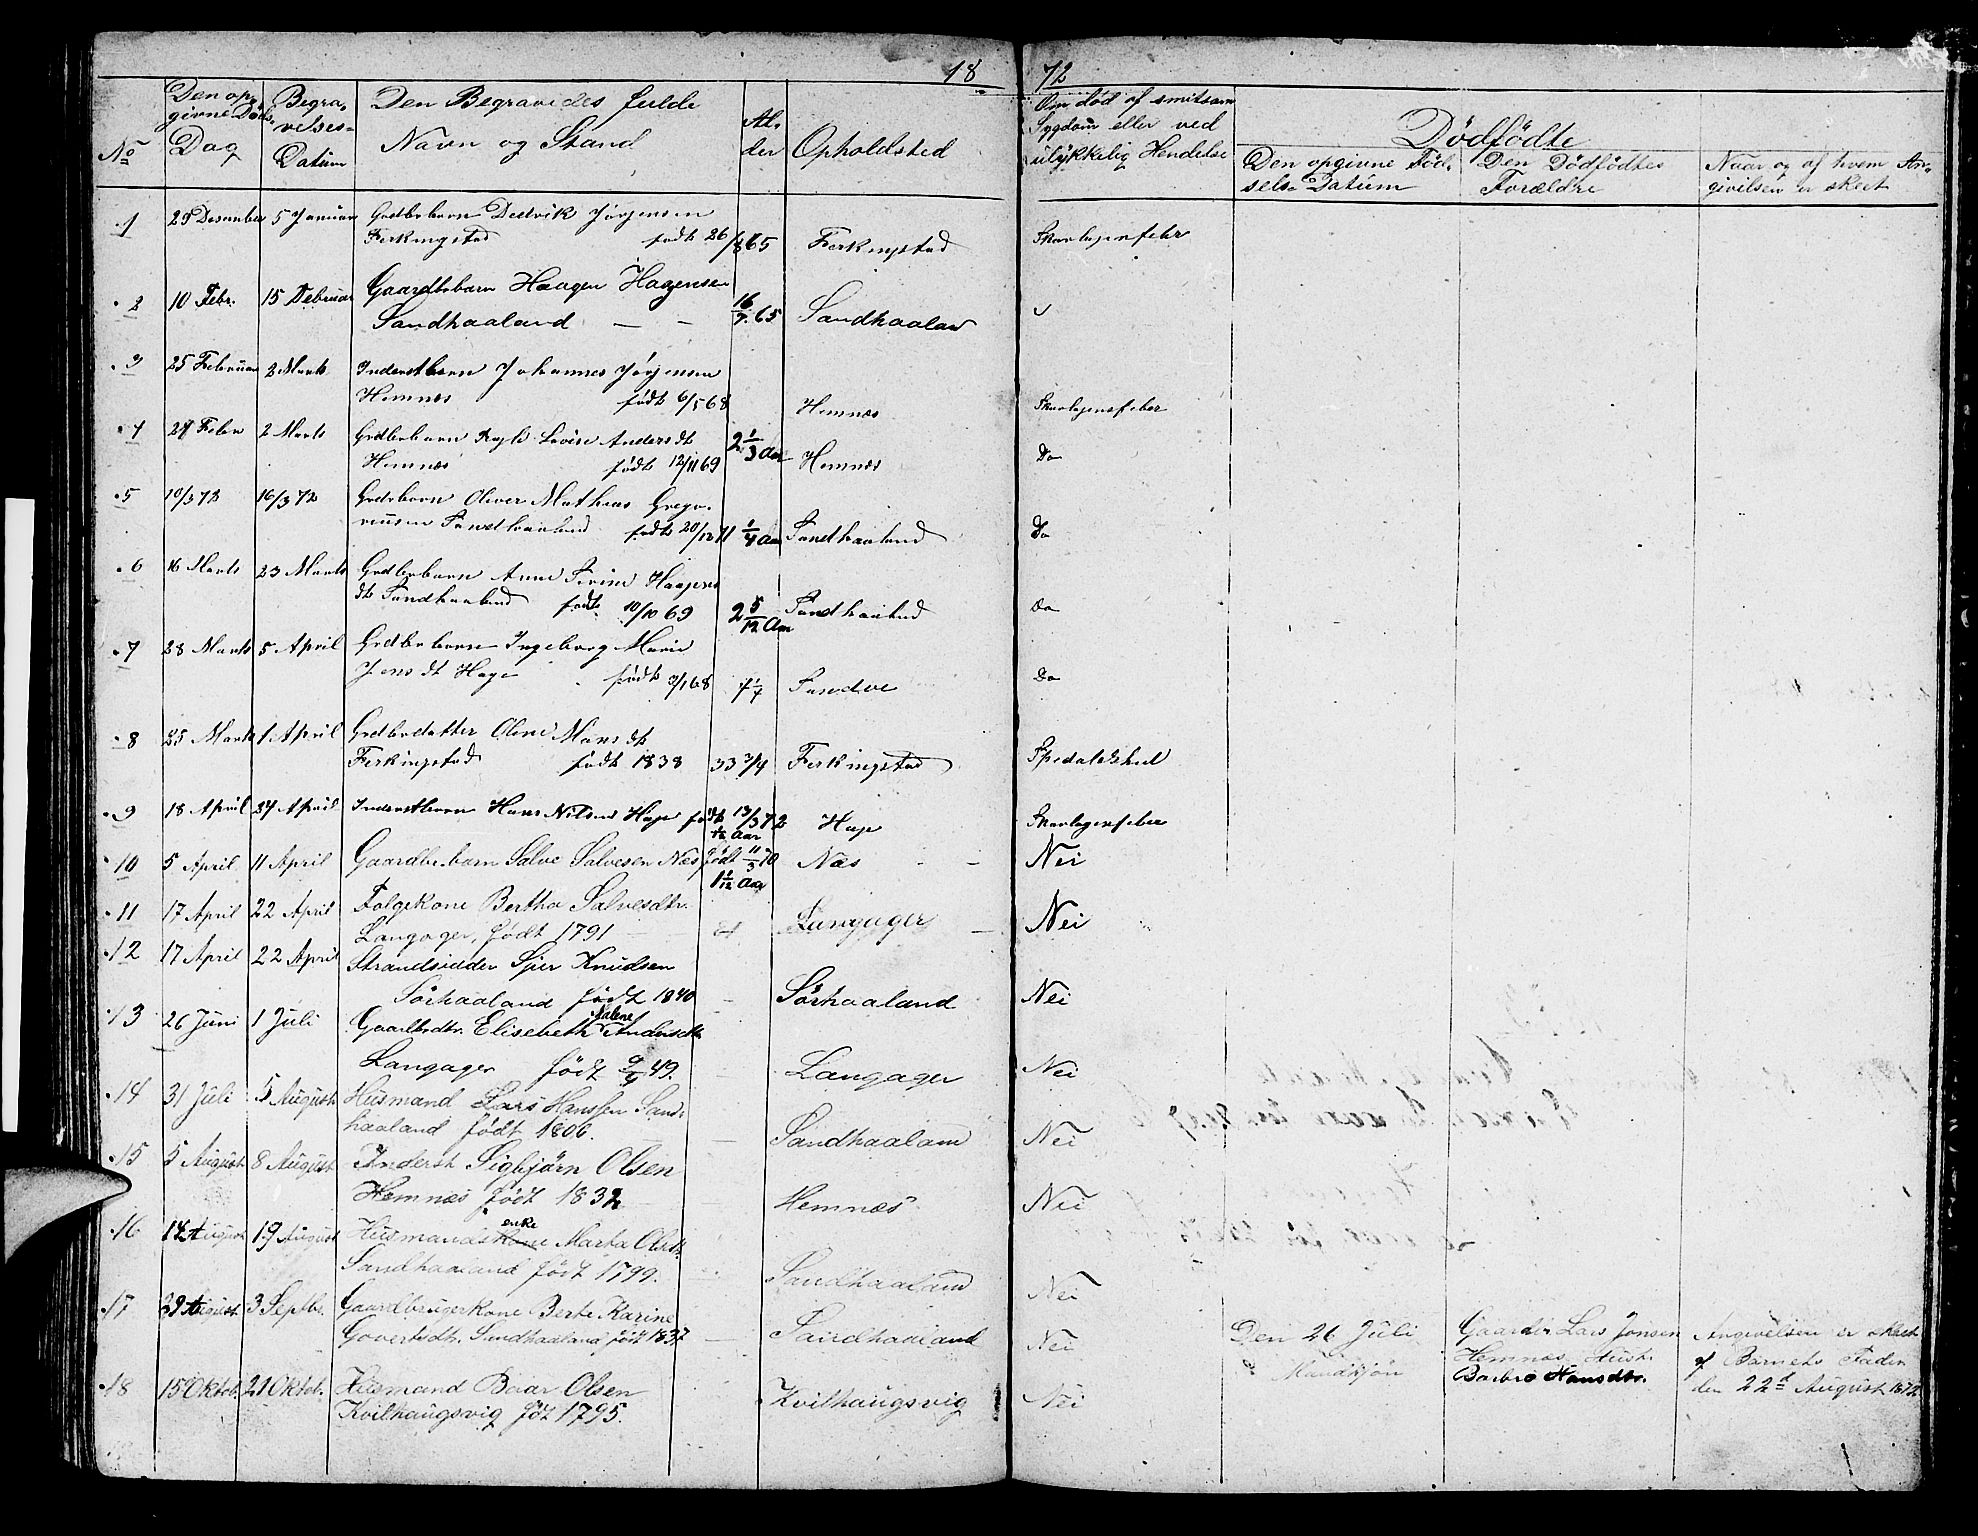 18 72
No
Den op-
givne Døds-
Dag
Begra-
velses-
Datum
Den Begravedes fulde
Navn og Stand
Al-
der
Opholdsted
Om død af smitsom
Sygdom eller ved
ulykkelig Hendelse
Dødfødte
Den opgivne Fød-
sels-Datum
Den Dødfødtes
Forældre
Naar og af hvem An-
givelsen er skeet
1 29 Desember 5 Januar Grdbrbarn Dedrik Jørgensen
Ferkingstad født 26/8 65 Ferkingstad Skarlagensfeber
2 10 Febr. 15 Februar Gaardbrbarn Haagen Hagensen
Sandhaaland — — 16/7 65 Sandhaalan
3 25 Februar 2 Marts Inderstbarn Johannes Jørgensen
Hemnes født 6/5 68 Hemnæs Skarlagensfeber
4 24 Febr 2 Marts Grdbrbarn Lovise Andersdt
Hemnæs født 12/11 69 2 1/3 Aar Hemnæs Do
5 10/3 72 16/3 72 Grdbrbarn Oliver Mathias Grego-
riusen Sandhaaland født 20/12 71 1/4 Aar Sandhaaland Do
6 16 Marts 23 Marts Grdbrbarn Anne Serine Haagens
dt Sandhaaland født 10/10 69 2 5/12 Aar Sandhaaland Do
7 28 Marts 5 April Grdbrbarn Ingeborg Marie
Jensdt Hage født 3/1 68 Sandve Do
8 25 Marts 1 April Grdbrdatter Oline Mansdt
Ferkingstad født 1838 33 3/4 Ferkingstad Spedalskhed
9 18 April 24 April Inderstbarn Hans Nilsen Hage født 17/3 72 Hage Skarlagensfeber
1/12 Aar
10 5 April 11 April Gaardbrbarn Salve Salvesen Næs født 11/3 70 Næs — Nei
1 1/12 Aar
11 17 April 22 April Folgekone Bertha Salvesdtr.
Langager, født 1791 Langager — Nei
12 17 April 22 April Strandsidder Sjur Knudsen
Sørhaaland født 1840 — Sørhaaland Nei
13 26 Juni 1 Juli Gaardbrdtr. Elisebeth Malene Andersdtr
Langager født 9/4 49. — Langager Nei
14 31 Juli 5 August Husmand Lars Hanssen Sand-
haaland født 1806. — Sandhaaland Nei
15 5 August 8 August Inderst Sigbjørn Olsen
Hemnæs født 1832 Hemnæs Nei
16 14 August 19 August Husmandskone enke Marta Olsdtr
Sandhaaland født 1799. Sandhaaland Nei
17 29 August 3 Septbr. Gaardbrugerkone Berte Karine
Govertsdtr. Sandhaaland født 1837 — Sandhaaland Nei
Den 26 Juli
Mandkjøn
Gaardbr Lars Jonsen
Hemnæs, Hust.
Barbro Hansdtr.
Angivelsen er skeet
af Barnets Fader
den 22d August 1872
18 15 Oktob. 21 Oktob. Husmand Baar Olsen
Kvilhaugsvig føt 1795. Kvilhaugsvig Nei